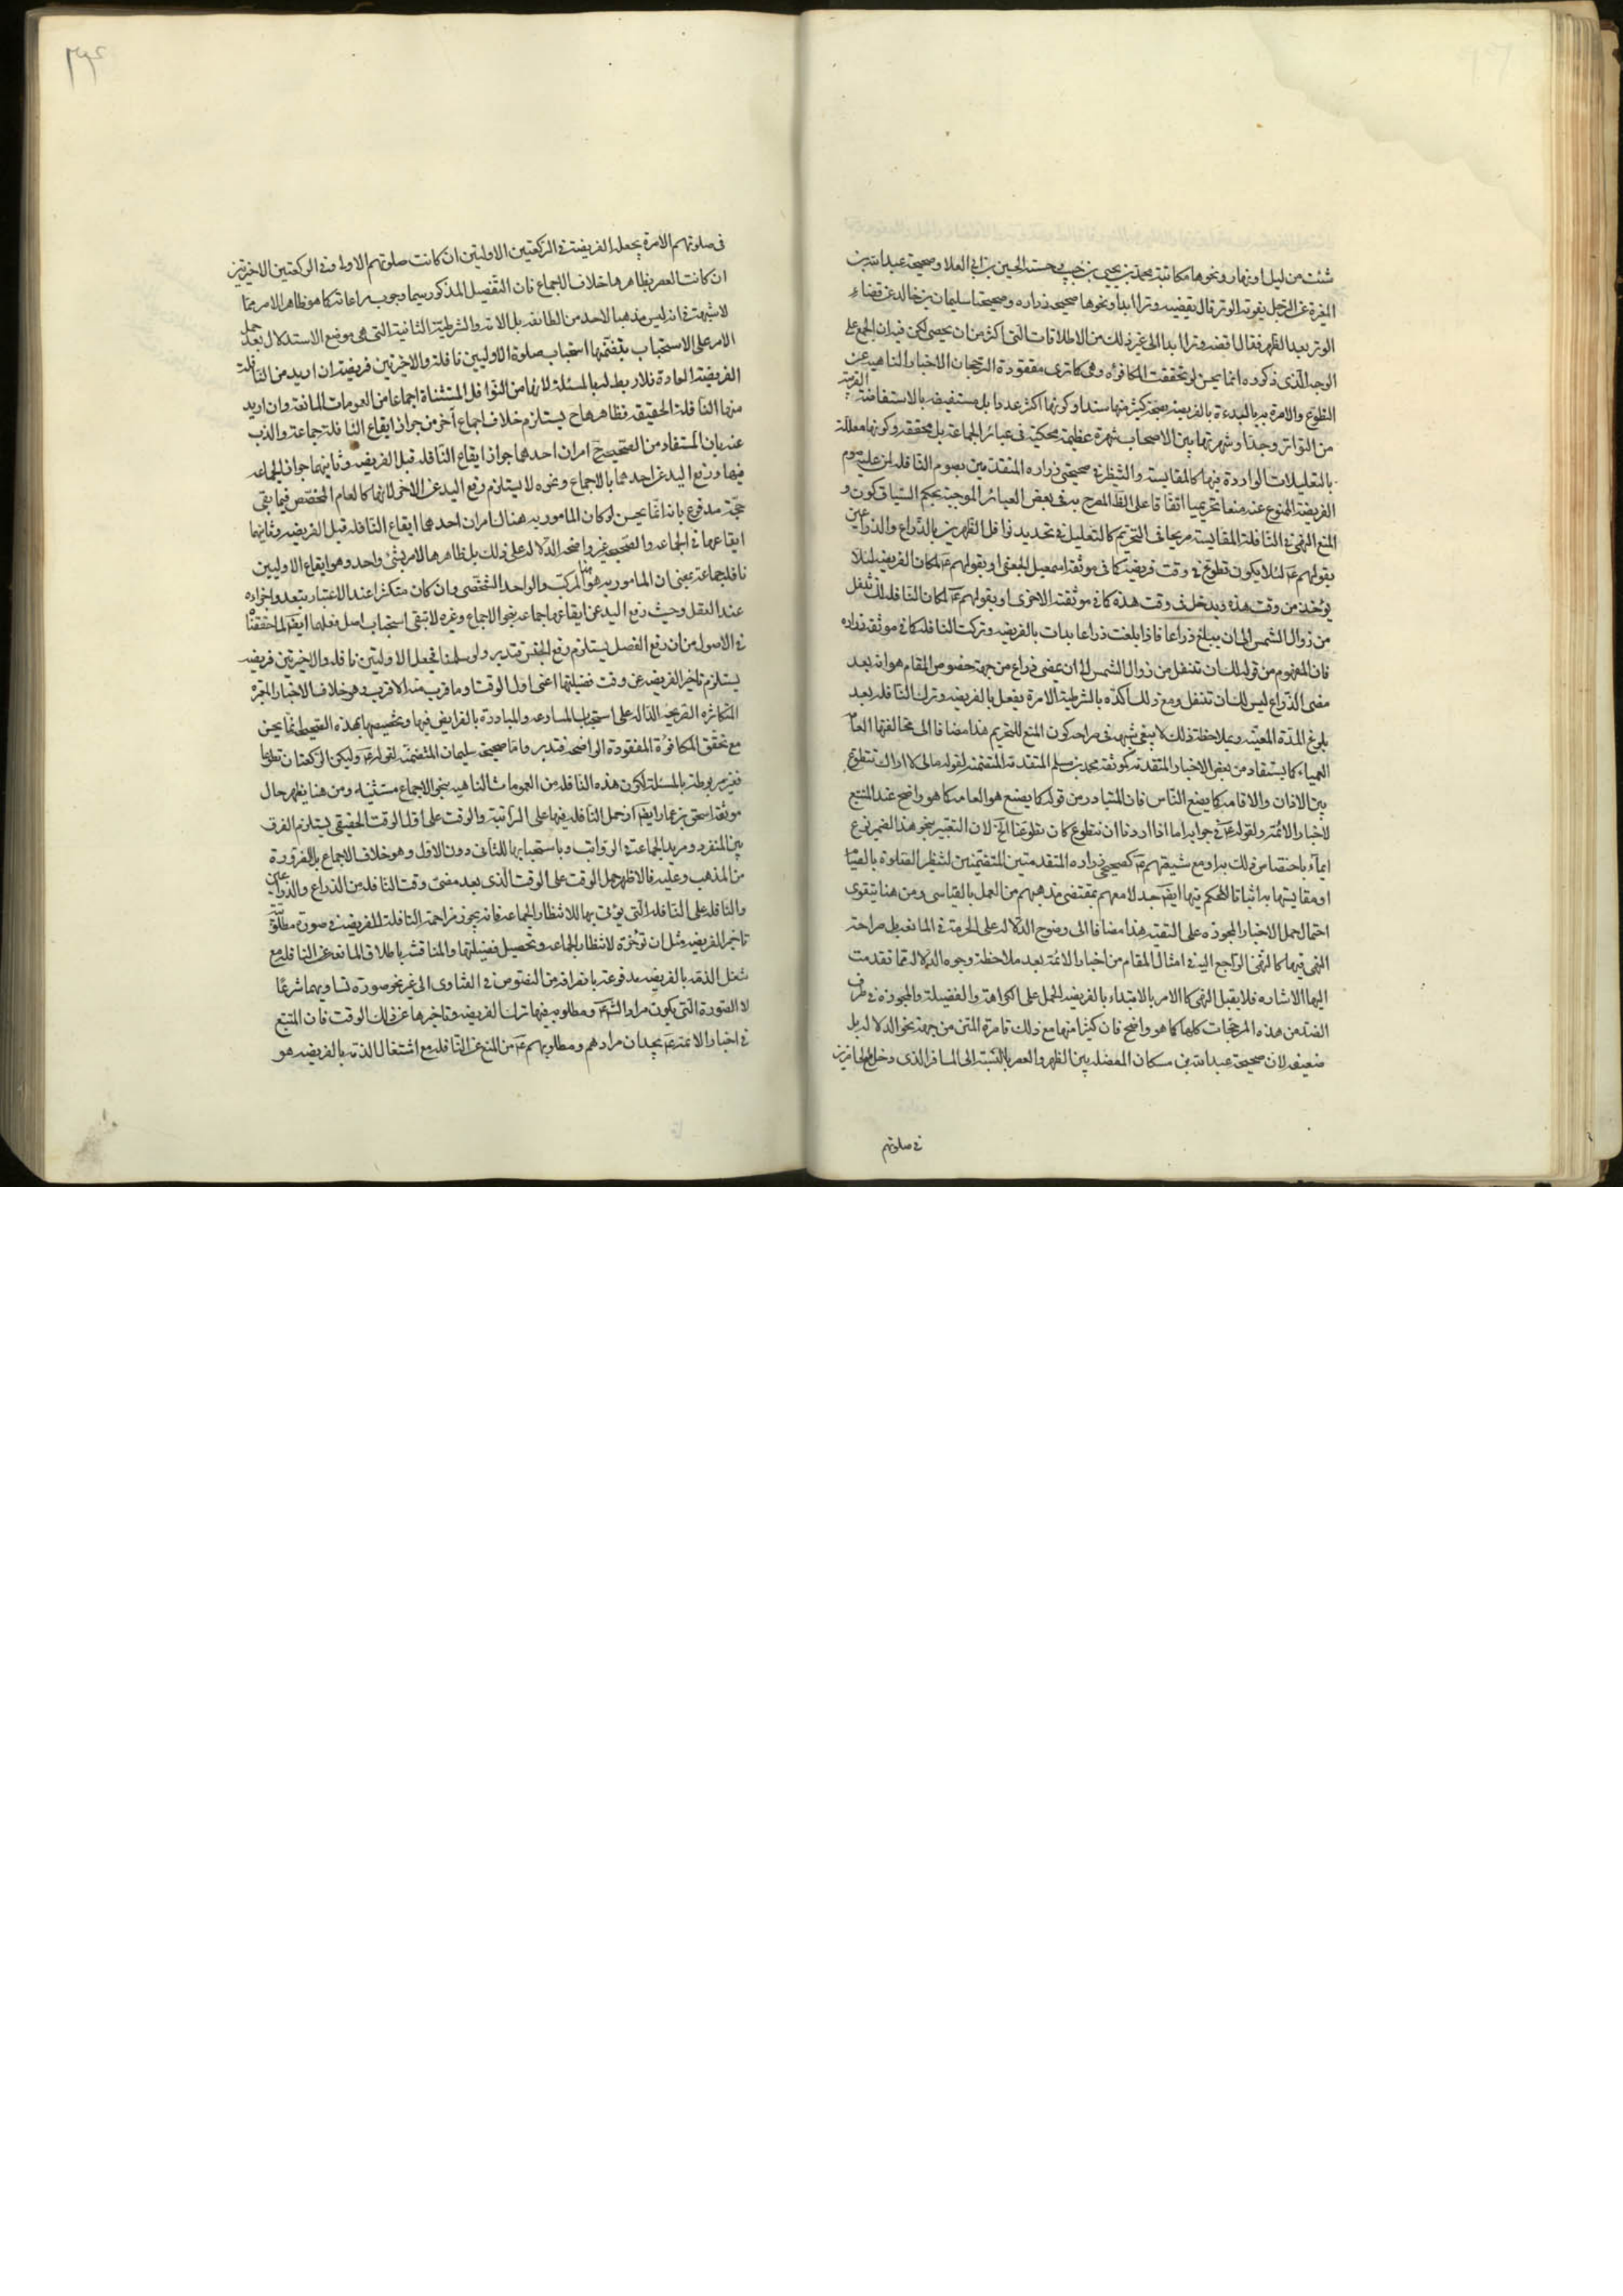 شئت من ليل او نهار ونحوها مكاتبة محمد بن يحيى بن حبيب وحسنة الحسين بن ابي العلا وصحيحة عبد الله بن
المغيرة عن الرجل يفوته الوتر قال يقضيه وترا ابدا ونحوها صحيحة زراره وصحيحة سليمان بن خالد عن قضاء
الوتر بعد الظهر فقال اقضه وترا ابدا الى غير ذلك من الاطلاقات التى اكثر من ان يحصى لكن فيه ان الجمع على
الوجه الذى ذكروه انما يحسن لو تحققت المكافؤه وهى كما ترى مفقودة لترجحان الاخبار الناهيه عن
التطوع والامرة به بالبدءة بالفريضه بصحة كثير منها سندا وكونها اكثر عددا بل مستفيضه بالاستفاضة القريبة
من التواتر وجدا وشهرتها بين الاصحاب شهرة عظيمة محكية فى عبائر الجماعة بل محققه وكونها معللة
بالتعليلات الواردة فيها كالمقايسة والتنظير فى صحيحتى زراره المتقدمتين بصوم النافله لمن عليه صوم
الفريضة الممنوع عنه منعا تحريميا اتفاقا على الظ المصرح به فى بعض العبائر الموجبة بحكم السياق كون و
المنع النهى فى النافلة المقايسة صريحا فى التحريم كالتعليل فى تحديد نوافل الظهرين بالذراع والذراعين
بقولهم ع لئلا يكون تطوع فى وقت فريضة كما فى موثقة اسمعيل الجعفى او بقولهم ع لمكان الفريضه لئلا
يؤخذ من وقت هذه ويدخل فى وقت هذه كما فى موثقته الاخرى او بقولهم ع لمكان النافله لك تنفل
من زوال الشمس الى ان يبلغ ذراعا فاذا بلغت ذراعا بدات بالفريضه وتركت النافله كما فى موثقه زراره
فان المفهوم من قوله لك ان تتنفل من زوال الشمس الى ان يمضى ذراع من جهة خصوص المقام هو انه بعد
مضى الذراع ليس لك ان تتنفل ومع ذلك اكده بالشرطية الامرة بفعل بالفريضه وترك النافله بعد
بلوغ المدة المعينه وبملاحظة ذلك لا يبقى شبهة فى صراحه كون المنع للتحريم هذا مضافا الى مخالفتها العامه
العمياء كما يستفاد من بعض الاخبار المتقدمه كموثقة محمد بن مسلم المتقدمة المتضمنه لقوله مالى لا اراك تتطوع
بين الاذان والاقامه كما يصنع الناس فان المتبادر من قوله كما يصنع هو العامه كما هو واضح عند المتتبع
لاخبار الائمه ولقوله ع فى جوابه اما اذا اردنا ان نتطوع كان تطوعنا الخ لان التعبير بنحو هذا الضمير نوع
ايماء باختصاص ذلك به او مع شيعتهم ع كصحيحى زراره المتقدمتين المتضمنتين لتنظير الصلوة بالصيام
او مقايستها به اثباتا للحكم فيها ايض جدلا معهم بمقتضى مذهبهم من العمل بالقياس ومن هنا يتقوى
احتمال حمل الاخبار المجوزه على التقيه هذا مضافا الى وضوح الدلاله على الحرمة فى المانعه بل صراحة
النهى فيها كالنهى الراجع اليه فى امثال المقام من اخبار الائمه بعد ملاحظة وجوه الدلاله مما تقدمت
اليها الاشاره فلا يقبل النهى كالامر بالابتداء بالفريضه الحمل على الكراهة والفضيلة والمجوزه فى طرف
الضد من هذه المرجحات كلها كما هو واضح فان كثيرا منها مع ذلك قاصرة المتن من جهة نحو الدلاله بل
ضعيفه لان صحيحة عبد الله بن مسكان المفصله بين الظهر والعصر بالنسبة الى المسافر الذى دخل مع الحاضرين
فى صلوتهم
فى صلوتهم الامرة بجعله الفريضة فى الركعتين الاوليتين ان كانت صلوتهم الاولى وفى الركعتين الاخيرتين
ان كانت العصر بظاهرها خلاف الاجماع فان التفصيل المذكور سيما وجوب مراعاته كما هو ظاهر الامر مما
لا شبهة فى انه ليس مذهبا لاحد من الطائفه بل الامة والشرطية الثانية التى هى موضع الاستدلال بعد حمل
الامر على الاستحباب بتضمنها استحباب صلوة الاوليين نافلة والاخيرتين فريضة ان اريد من النافلة
الفريضة المعادة فلا ربط له بالمسئلة لانها من النوافل المستثناة اجماعا من العمومات المانعة وان اريد
منها النافلة الحقيقه فظاهرها ح يستلزم خلاف اجماع آخر من جواز ايقاع النافلة جماعة والذب
عنه بان المستفاد من الصحيحه امران احدهما جواز ايقاع النافله قبل الفريضه وثانيهما جواز الجماعه
فيها ورفع اليد عن احدهما بالاجماع ونحوه لا يستلزم رفع اليد عن الاخر لانها كالعام المخصص فيما بقى
حجة مدفوع بانه انما يحسن لو كان المامور به هناك امران احدهما ايقاع النافله قبل الفريضه وثانيهما
ايقاعها فى الجماعه والصحيحه غير واضحه الدلاله على ذلك بل ظاهرها الامر بشئ واحد وهو ايقاع الاوليين
نافلة جماعة بمعنى ان المامور به هو المركب والواحد الشخصى وان كان متكثرا عند الاعتبار بتعدد اجزاءه
عند العقل وحيث رفع اليد عن ايقاعها جماعه بنحو الاجماع وغيره لا تبقى استحباب اصل فعلها ايض لما حققنا
فى الاصول من ان رفع الفصل يستلزم رفع الجنس فتدبر ولو سلمنا فجعل الاوليتين نافله والاخيرتين فريضه
يستلزم تاخير الفريضه عن وقت فضيلتها اعنى اول الوقت او ما قرب منه الاقرب وهو خلاف الاخبار المعتبره
المتكاثره الصريحه الداله على استحباب المسارعه والمبادرة بالفرايض فيها وتخصيصها بهذه الصحيحه انما يحسن
مع تحقق المكافؤة المفقودة الواضحه فتدبر واما صحيحة سليمان المتضمنة لقوله ع وليكن الركعتان تطوعا
فغير مربوطة بالمسئلة لكون هذه النافله من العمومات الناهيه بنحو الاجماع مستثنيه ومن هنا يظهر حال
موثقة اسحق بن عمار ايض اذ حمل النافله فيها على الراتبة والوقت على اول الوقت الحقيقى يستلزم الفرق
بين المنفرد ومريد الجماعة فى الرواتب وباستحبابها للثانى دون الاول وهو خلاف الاجماع بل الضرورة
من المذهب وعليه فالاظهر حمل الوقت على الوقت الذى بعد مضى وقت النافله من الذراع والذراعين
والنافله على النافله التى يؤتى بها للانتظار والجماعه فانه يجوز مزاحمة النافلة للفريضة فى صورة مطلوبية
تاخير الفريضه مثل ان تؤخره لانتظار الجماعه وتحصيل فضيلتها والمناقشه باطلاق المانعه عن النافله مع
شغل الذمه بالفريضه مدفوعة بانصرافه من النصوص فى الفتاوى الى غير نحو صورة تساويهما شرعًا
لا الصورة التى يكون مراد الش ومطلوبه فيها ترك الفريضه وتاخيرها عن ذلك الوقت فان المتتبع
فى اخبار الائمة ع يجد ان مرادهم ومطلوبهم ع من المنع عن النافله مع اشتغال الذمه بالفريضه هو